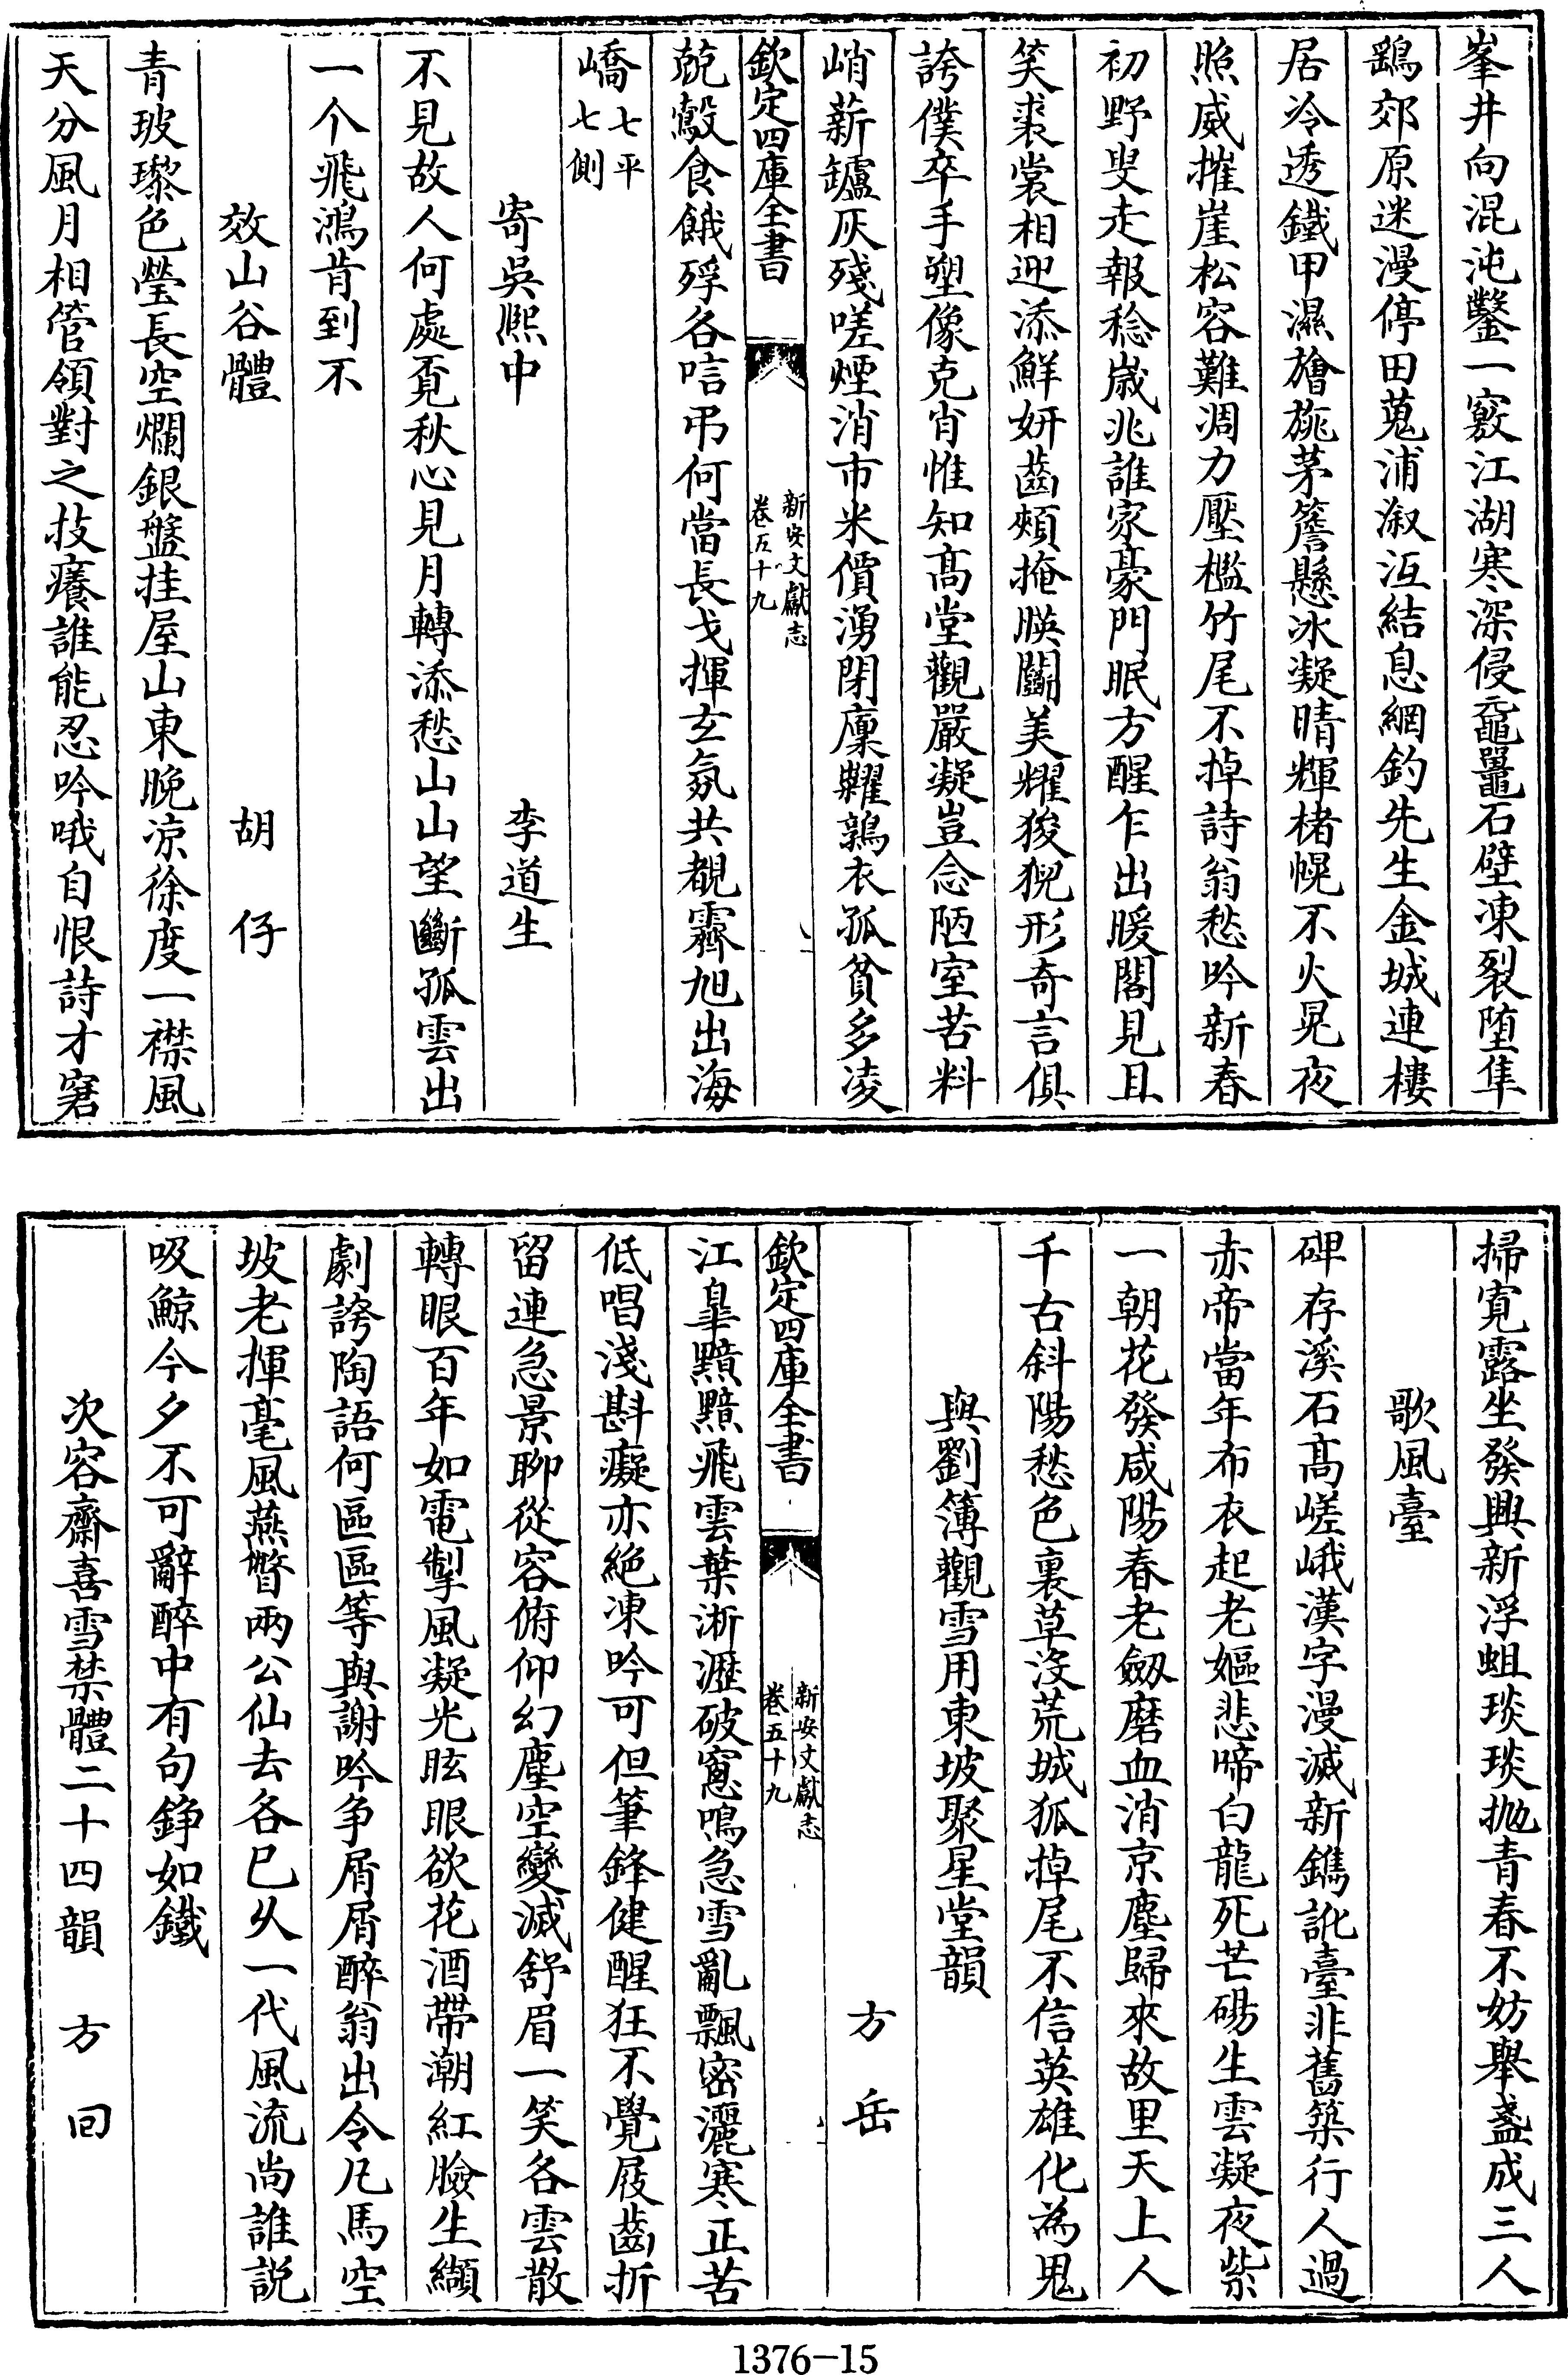 峯井向混沌鑿一竅江湖寒深侵黿鼉石壁凍裂墮隼
鷂郊原迷漫停田蒐浦溆沍結息網釣先生金城連樓
居冷透鐵甲濕旝旐茅簷懸冰凝晴輝楮幌不火晃夜
照威摧崖松容難凋力壓檻竹尾不掉詩翁愁吟新春
初野叟走報稔歲兆誰家豪門眠方醒乍出暖閣見且
笑裘裳相迎添鮮妍齒頰掩朠鬭美耀狻猊形奇言俱
誇僕卒手塑像克肖惟知髙堂觀嚴凝豈念陋室苦料
峭薪鑪灰殘嗟煙消市米價湧閉廩糶鶉衣孤貧多凌
欽定四庫全書
新安文獻志
卷五十九
兢鷇食餓殍各唁弔何當長戈揮玄氛共覩霽旭出海
嶠七平
七側
寄吳熈中
李道生
不見故人何處覔秋心見月轉添愁山山望斷孤雲出
一个飛鴻肯到不
效山谷體
胡仔
青玻瓈色瑩長空爛銀盤挂屋山東晚凉徐度一襟風
天分風月相管領對之技癢誰能忍吟哦自恨詩才窘
掃寛露坐發興新浮蛆琰琰抛青春不妨舉盞成三人
歌風臺
碑存溪石髙嵯峨漢字漫滅新鐫訛臺非舊築行人過
赤帝當年布衣起老嫗悲啼白龍死芒碭生雲凝夜紫
一朝花發咸陽春老劒磨血消京塵歸來故里天上人
千古斜陽愁色裏草沒荒城狐掉尾不信英雄化為鬼
與劉簿觀雪用東坡聚星堂韻
方岳
欽定四庫全書
新安文獻志
卷五十九
江臯黯黯飛雲葉淅瀝破窻鳴急雪亂飄密灑寒正苦
低唱淺斟癡亦絶凍吟可但筆鋒健醒狂不覺屐齒折
留連急景聊從容俯仰幻塵空變滅舒眉一笑各雲散
轉眼百年如電掣風凝光眩眼欲花酒帶潮紅臉生纈
劇誇陶語何區區等與謝吟争屑屑醉翁出令凢馬空
坡老揮毫風燕瞥兩公仙去各已乆一代風流尚誰說
吸鯨今夕不可辭醉中有句錚如鐵
次容齋喜雪禁體二十四韻
方回
1376-15